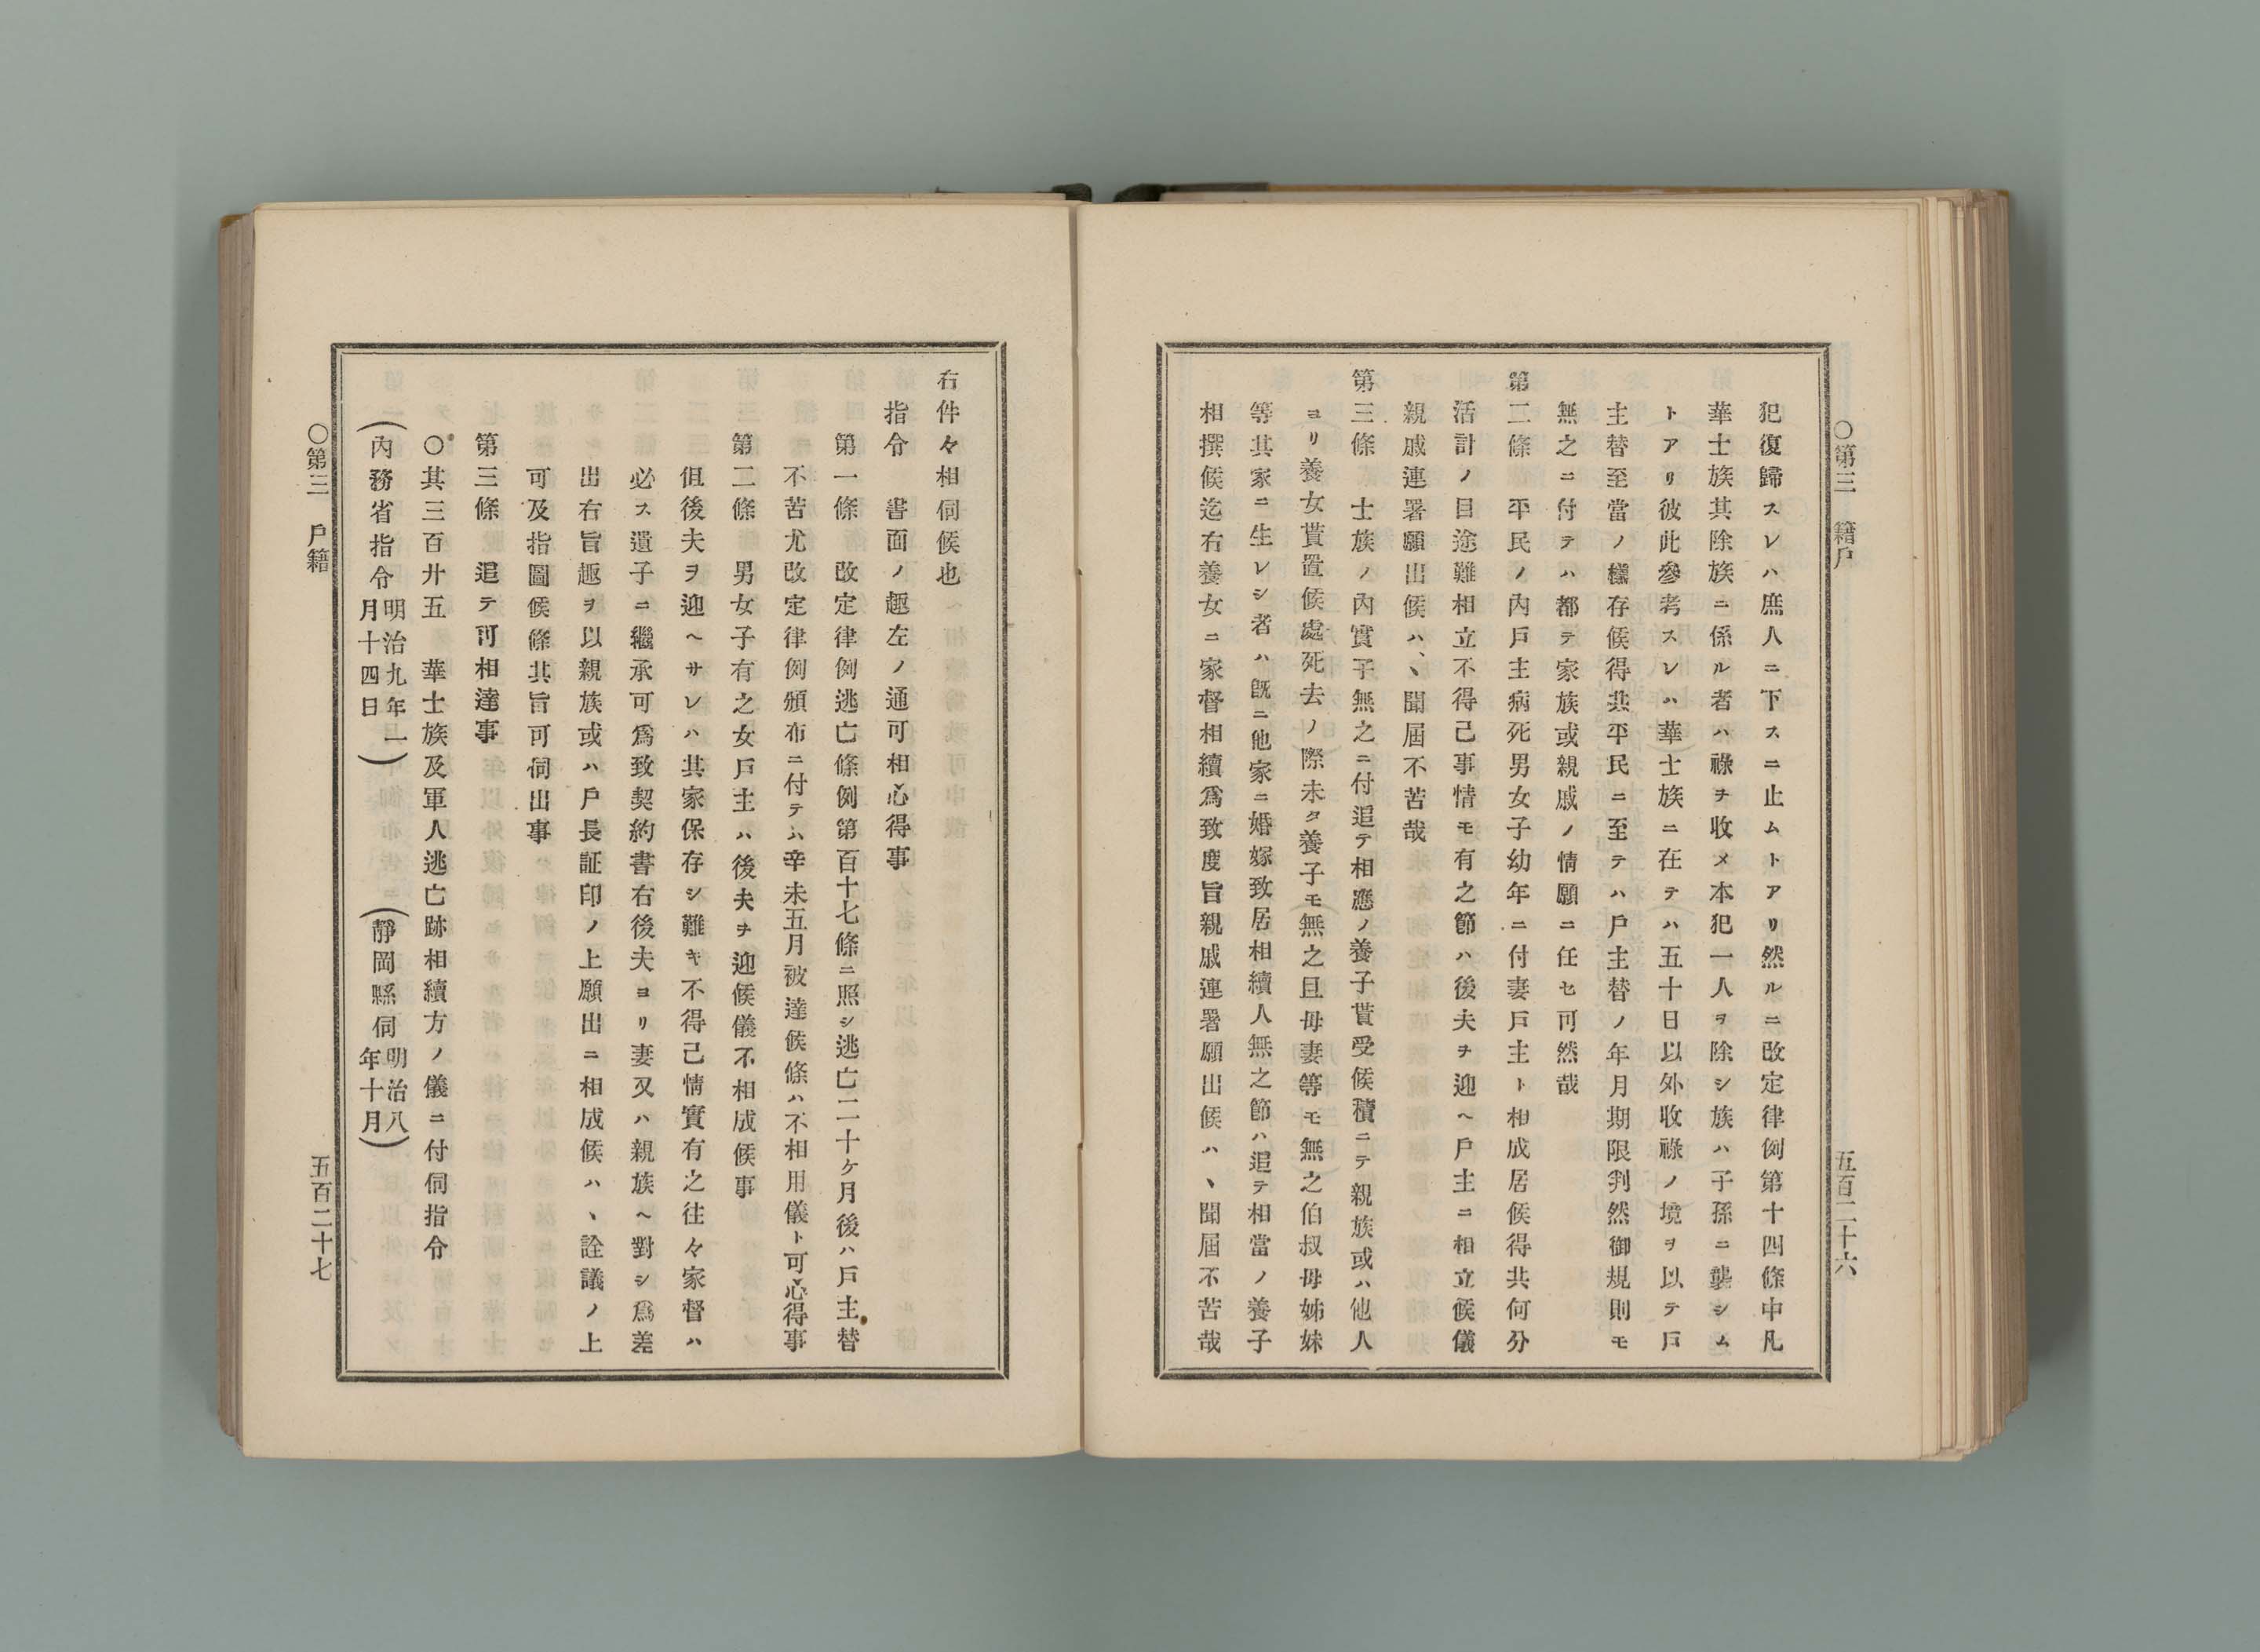 〇第三　籍戶
五百二十六
犯復歸スレハ庶人ニ下スニ止ムトアリ然ルニ改定律例第十四條中凡
華士族其除族ニ係ル者ハ祿ヲ收メ本犯一人ヲ除シ族ハ子孫ニ襲シム
トアリ彼此參考スレハ華士族ニ在テハ五十日以外收祿ノ境ヲ以テ戶
主替至當ノ樣存候得共平民ニ至テハ戶主替ノ年月期限判然御規則モ
無之ニ付テハ都テ家族或親戚ノ情願ニ任セ可然哉
第二條　平民ノ內戶主病死男女子幼年ニ付妻戶主ト相成居候得共何分
活計ノ目途難相立不得己事情モ有之節ハ後夫ヲ迎ヘ戶主ニ相立候儀
親戚連署願出候ハヽ聞屆不苦哉
第三條　士族ノ內實子無之ニ付追テ相應ノ養子貰受候積ニテ親族或ハ他人
ヨリ養女貰置候處死去ノ際未タ養子モ無之且母妻等モ無之伯叔母姊妹
等其家ニ生レシ者ハ既ニ他家ニ婚嫁致居相續人無之節ハ追テ相當ノ養子
相撰候迄右養女ニ家督相續爲致度旨親戚連署願出候ハヽ聞屆不苦哉
右件々相伺候也
指令　書面ノ趣左ノ通可相心得事
第一條　改定律例逃亡條例第百十七條ニ照シ逃亡二十ケ月後ハ戶主替
不苦尤改定律例頒布ニ付テハ辛未五月被達候條ハ不相用儀ト可心得事
第二條　男女子有之女戶主ハ後夫ヲ迎候儀不相成候事
但後夫ヲ迎ヘサレハ其家保存シ難キ不得己情實有之往々家督ハ
必ス遺子ニ繼承可爲致契約書右後夫ヨリ妻又ハ親族ヘ對シ爲差
出右旨趣ヲ以親族或ハ戶長証印ノ上願出ニ相成候ハヽ詮議ノ上
可及指圖候條其旨可伺出事
第三條　追テ可相達事
〇其三百廿五　華士族及軍人逃亡跡相續方ノ儀ニ付伺指令
(內務省指令明治九年一月十四日)　(靜岡縣伺明治八年十月)
〇第三　戶籍
五百二十七